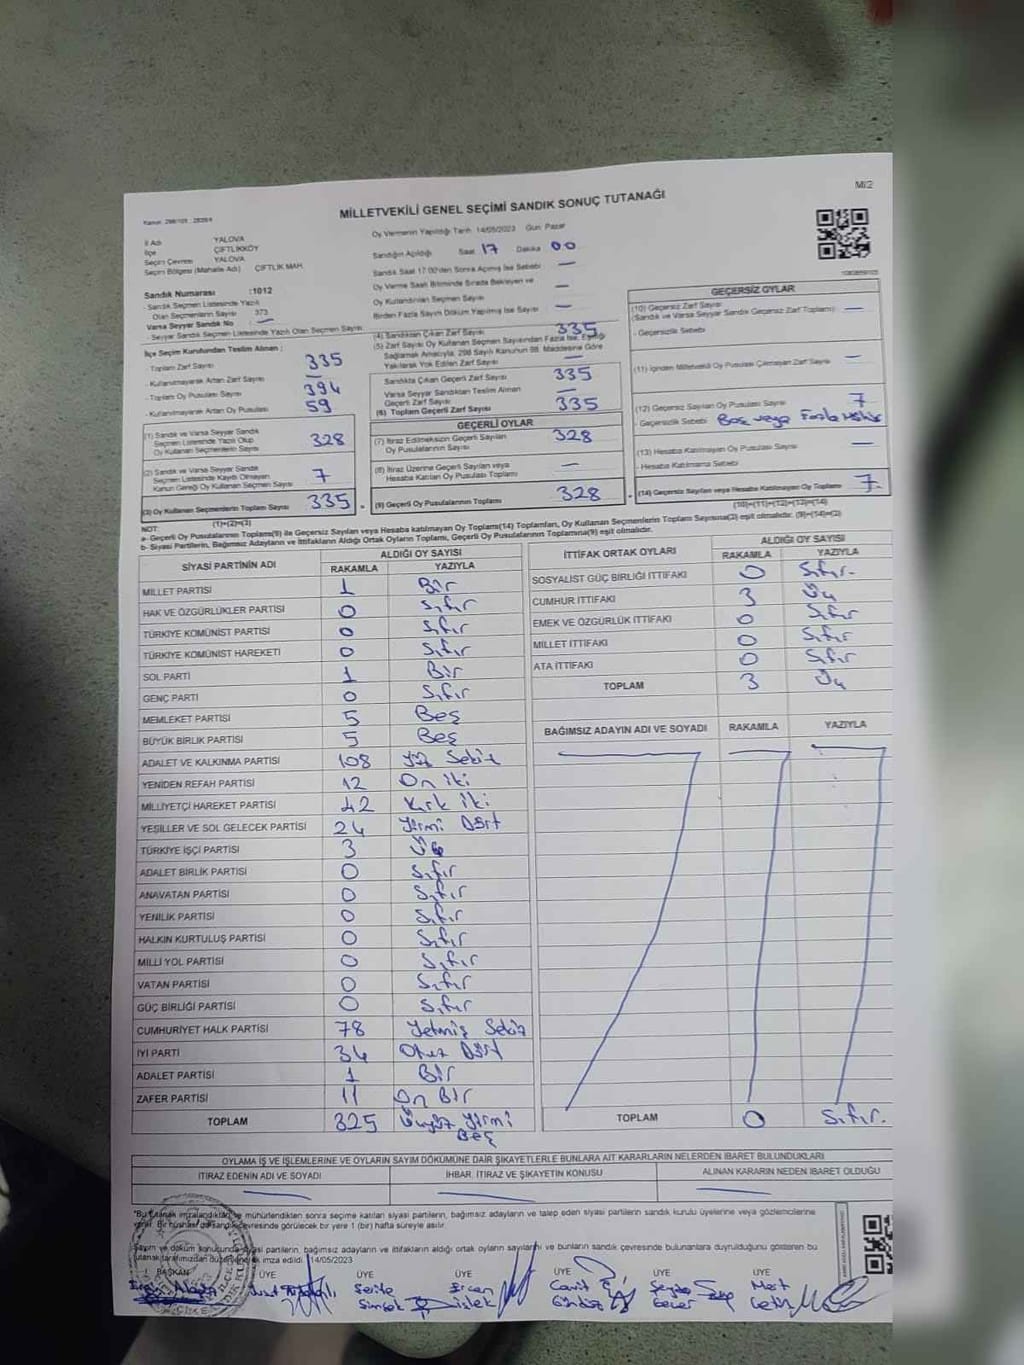 Kanun: 298/105 : 2839/4
M/2
MİLLETVEKİLİ GENEL SEÇİMİ SANDIK SONUÇ TUTANAĞI
İl Adı YALOVA
İlçe ÇİFTLİKKÖY
Seçim Çevresi YALOVA
Seçim Bölgesi (Mahalle Adı) ÇİFTLİK MAH.
Sandık Numarası :1012
- Sandık Seçmen Listesinde Yazılı
Olan Seçmenlerin Sayısı 373
Varsa Seyyar Sandık No —
- Seyyar Sandık Seçmen Listesinde Yazılı Olan Seçmen Sayısı
İlçe Seçim Kurulundan Teslim Alınan :
- Toplam Zarf Sayısı 335
- Kullanılmayarak Artan Zarf Sayısı —
- Toplam Oy Pusulası Sayısı 394
- Kullanılmayarak Artan Oy Pusulası 59
(1) Sandık ve Varsa Seyyar Sandık
Seçmen Listesinde Yazılı Olup
Oy Kullanan Seçmenlerin Sayısı 328
(2) Sandık ve Varsa Seyyar Sandık
Seçmen Listesinde Kayıtlı Olmayan
Kanun Gereği Oy Kullanan Seçmen Sayısı 7
(3) Oy Kullanan Seçmenlerin Toplam Sayısı 335
(1)+(2)=(3)
Oy Vermenin Yapıldığı Tarih 14/05/2023 Gün: Pazar
Sandığın Açıldığı Saat 17 Dakika 00
Sandık Saat 17:00'den Sonra Açılmış İse Sebebi —
Oy Verme Saati Bitiminde Sırada Bekleyen ve
Oy Kullandırılan Seçmen Sayısı —
Birden Fazla Sayım Döküm Yapılmış İse Sayısı —
(4) Sandıktan Çıkan Zarf Sayısı 335
(5) Zarf Sayısı Oy Kullanan Seçmen Sayısından Fazla İse, Eşitliği
Sağlamak Amacıyla, 298 Sayılı Kanunun 98. Maddesine Göre
Yakılarak Yok Edilen Zarf Sayısı —
Sandıkta Çıkan Geçerli Zarf Sayısı 335
Varsa Seyyar Sandıktan Teslim Alınan
Geçerli Zarf Sayısı —
(6) Toplam Geçerli Zarf Sayısı 335
GEÇERLİ OYLAR
(7) İtiraz Edilmeksizin Geçerli Sayılan
Oy Pusulalarının Sayısı 328
(8) İtiraz Üzerine Geçerli Sayılan veya
Hesaba Katılan Oy Pusulası Toplamı —
(9) Geçerli Oy Pusulalarının Toplamı 328
GEÇERSİZ OYLAR
(10) Geçersiz Zarf Sayısı
(Sandık ve Varsa Seyyar Sandık Geçersiz Zarf Toplamı) —
- Geçersizlik Sebebi
(11) İçinden Milletvekili Oy Pusulası Çıkmayan Zarf Sayısı —
(12) Geçersiz Sayılan Oy Pusulası Sayısı 7
- Geçersizlik Sebebi Boş veya Fazla Mühür
(13) Hesaba Katılmayan Oy Pusulası Sayısı —
- Hesaba Katılmama Sebebi
(14) Geçersiz Sayılan veya Hesaba Katılmayan Oy Toplamı 7
(10)+(11)+(12)+(13)=(14)
NOT:
a- Geçerli Oy Pusulalarının Toplamı(9) ile Geçersiz Sayılan veya Hesaba katılmayan Oy Toplamı(14) Toplamları, Oy Kullanan Seçmenlerin Toplam Sayısına(3) eşit olmalıdır. (9)+(14)=(3)
b- Siyasi Partilerin, Bağımsız Adayların ve İttifakların Aldığı Ortak Oyların Toplamı, Geçerli Oy Pusulalarının Toplamına(9) eşit olmalıdır.
SİYASİ PARTİNİN ADI ALDIĞI OY SAYISI
RAKAMLA YAZIYLA
MİLLET PARTİSİ 1 Bir
HAK VE ÖZGÜRLÜKLER PARTİSİ 0 Sıfır
TÜRKİYE KOMÜNİST PARTİSİ 0 Sıfır
TÜRKİYE KOMÜNİST HAREKETİ 0 Sıfır
SOL PARTİ 1 Bir
GENÇ PARTİ 0 Sıfır
MEMLEKET PARTİSİ 5 Beş
BÜYÜK BİRLİK PARTİSİ 5 Beş
ADALET VE KALKINMA PARTİSİ 108 Yüz Sekiz
YENİDEN REFAH PARTİSİ 12 On iki
MİLLİYETÇİ HAREKET PARTİSİ 42 Kırk iki
YEŞİLLER VE SOL GELECEK PARTİSİ 24 Yirmi Dört
TÜRKİYE İŞÇİ PARTİSİ 3 Üç
ADALET BİRLİK PARTİSİ 0 Sıfır
ANAVATAN PARTİSİ 0 Sıfır
YENİLİK PARTİSİ 0 Sıfır
HALKIN KURTULUŞ PARTİSİ 0 Sıfır
MİLLİ YOL PARTİSİ 0 Sıfır
VATAN PARTİSİ 0 Sıfır
GÜÇ BİRLİĞİ PARTİSİ 0 Sıfır
CUMHURİYET HALK PARTİSİ 78 Yetmiş Sekiz
İYİ PARTİ 34 Otuz Dört
ADALET PARTİSİ 1 Bir
ZAFER PARTİSİ 11 On Bir
TOPLAM 325 Üçyüz Yirmi
Beş
İTTİFAK ORTAK OYLARI ALDIĞI OY SAYISI
RAKAMLA YAZIYLA
SOSYALİST GÜÇ BİRLİĞİ İTTİFAKI 0 Sıfır.
CUMHUR İTTİFAKI 3 Üç
EMEK VE ÖZGÜRLÜK İTTİFAKI 0 Sıfır
MİLLET İTTİFAKI 0 Sıfır
ATA İTTİFAKI 0 Sıfır
TOPLAM 3 Üç
BAĞIMSIZ ADAYIN ADI VE SOYADI RAKAMLA YAZIYLA
TOPLAM 0 Sıfır.
OYLAMA İŞ VE İŞLEMLERİNE VE OYLARIN SAYIM DÖKÜMÜNE DAİR ŞİKAYETLERLE BUNLARA AİT KARARLARIN NELERDEN İBARET BULUNDUKLARI
İTİRAZ EDENİN ADI VE SOYADI İHBAR, İTİRAZ VE ŞİKAYETİN KONUSU ALINAN KARARIN NEDEN İBARET OLDUĞU
*Bu tutanak imzalandıktan ve mühürlendikten sonra seçime katılan siyasi partilerin, bağımsız adayların ve talep eden siyasi partilerin sandık kurulu üyelerine veya gözlemcilerine
verilir. Bir nüshası da sandık çevresinde görülecek bir yere 1 (bir) hafta süreyle asılır.
Sayım ve döküm sonucunda siyasi partilerin, bağımsız adayların ve ittifakların aldığı ortak oyların sayılarını ve bunların sandık çevresinde bulunanlara duyrulduğunu gösteren bu
tutanak tarafımızdan düzenlenerek imza edildi. 14/05/2023
BAŞKAN ÜYE ÜYE ÜYE ÜYE ÜYE ÜYE
Cavit Mert
Şimşek Çetin